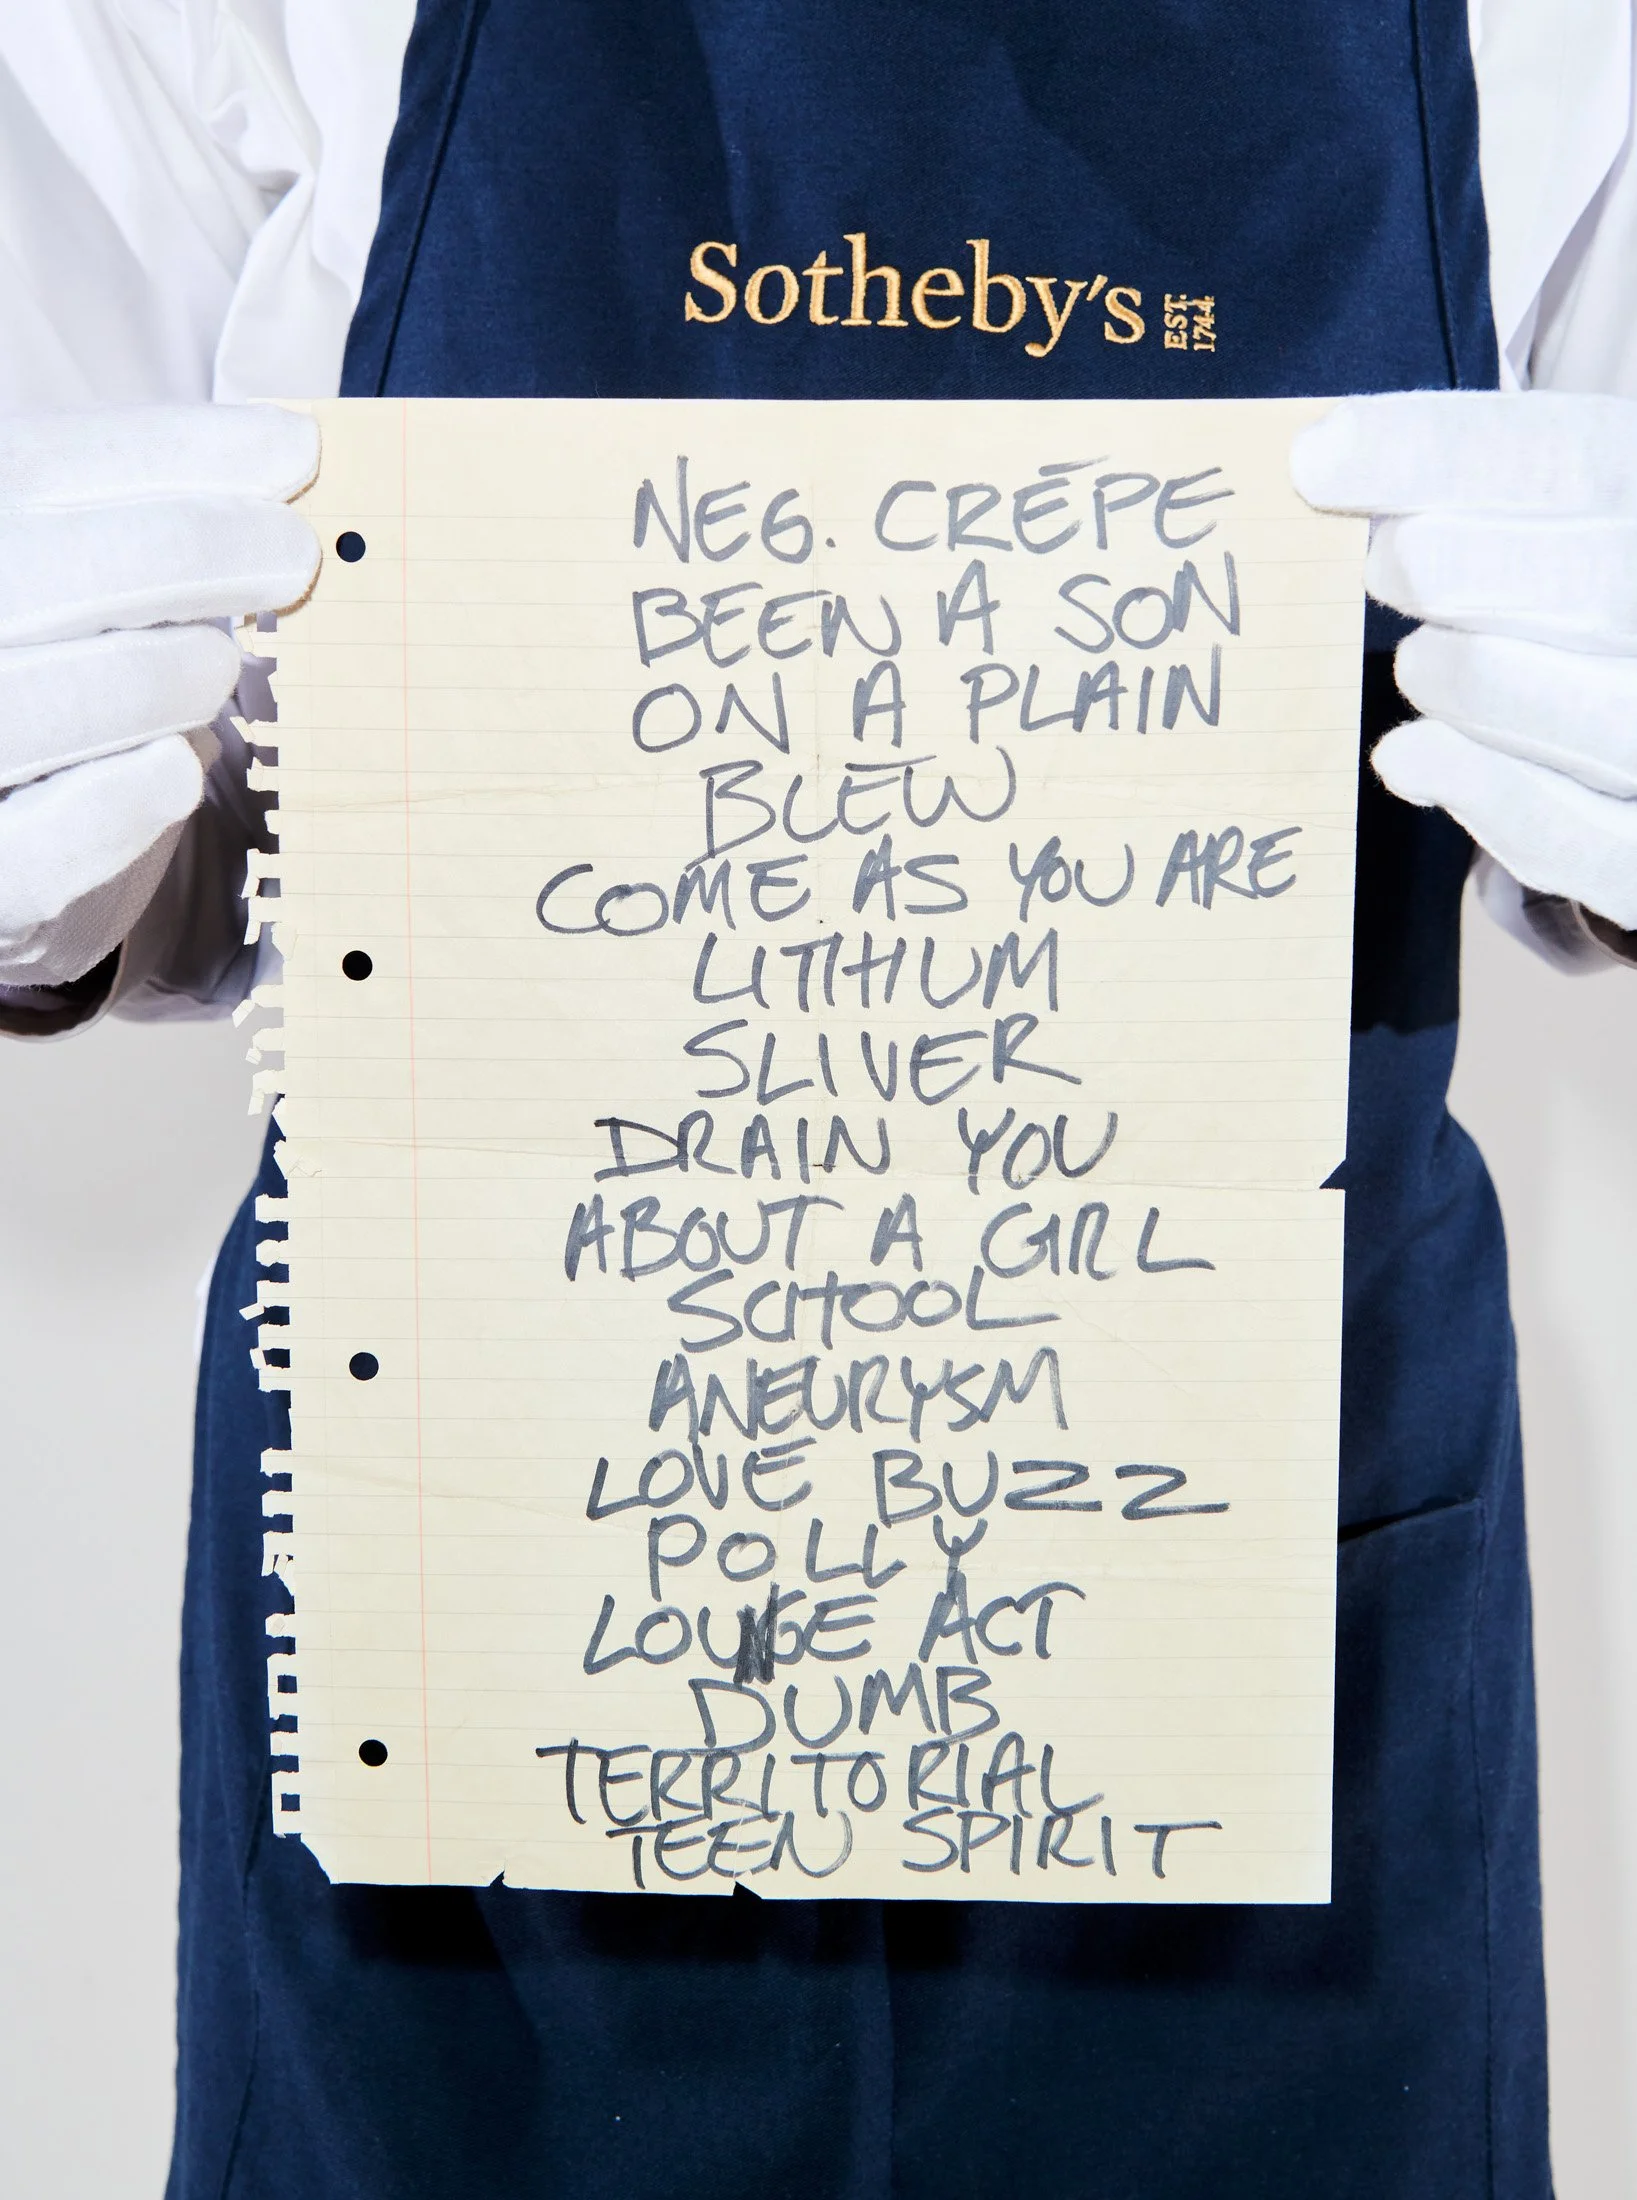 Sotheby's EST. 1744
NEG. CRĒPE
BEEN A SON
ON A PLAIN
BLEW
COME AS YOU ARE
LITHIUM
SLIVER
DRAIN YOU
ABOUT A GIRL
SCHOOL
ANEURYSM
LOVE BUZZ
POLLY
LOUNGE ACT
DUMB
TERRITORIAL
TEEN SPIRIT